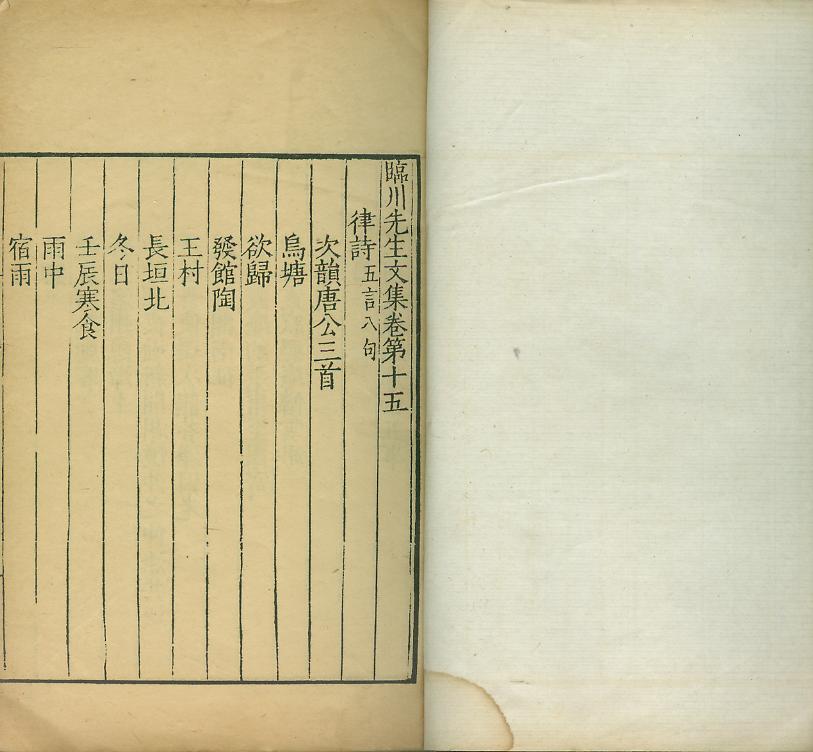 臨川先生文集卷第十五
律詩 五言八句
次韻唐公三首
烏塘
欲歸
發館陶
王村
長垣北
冬日
壬辰寒食
雨中
宿雨